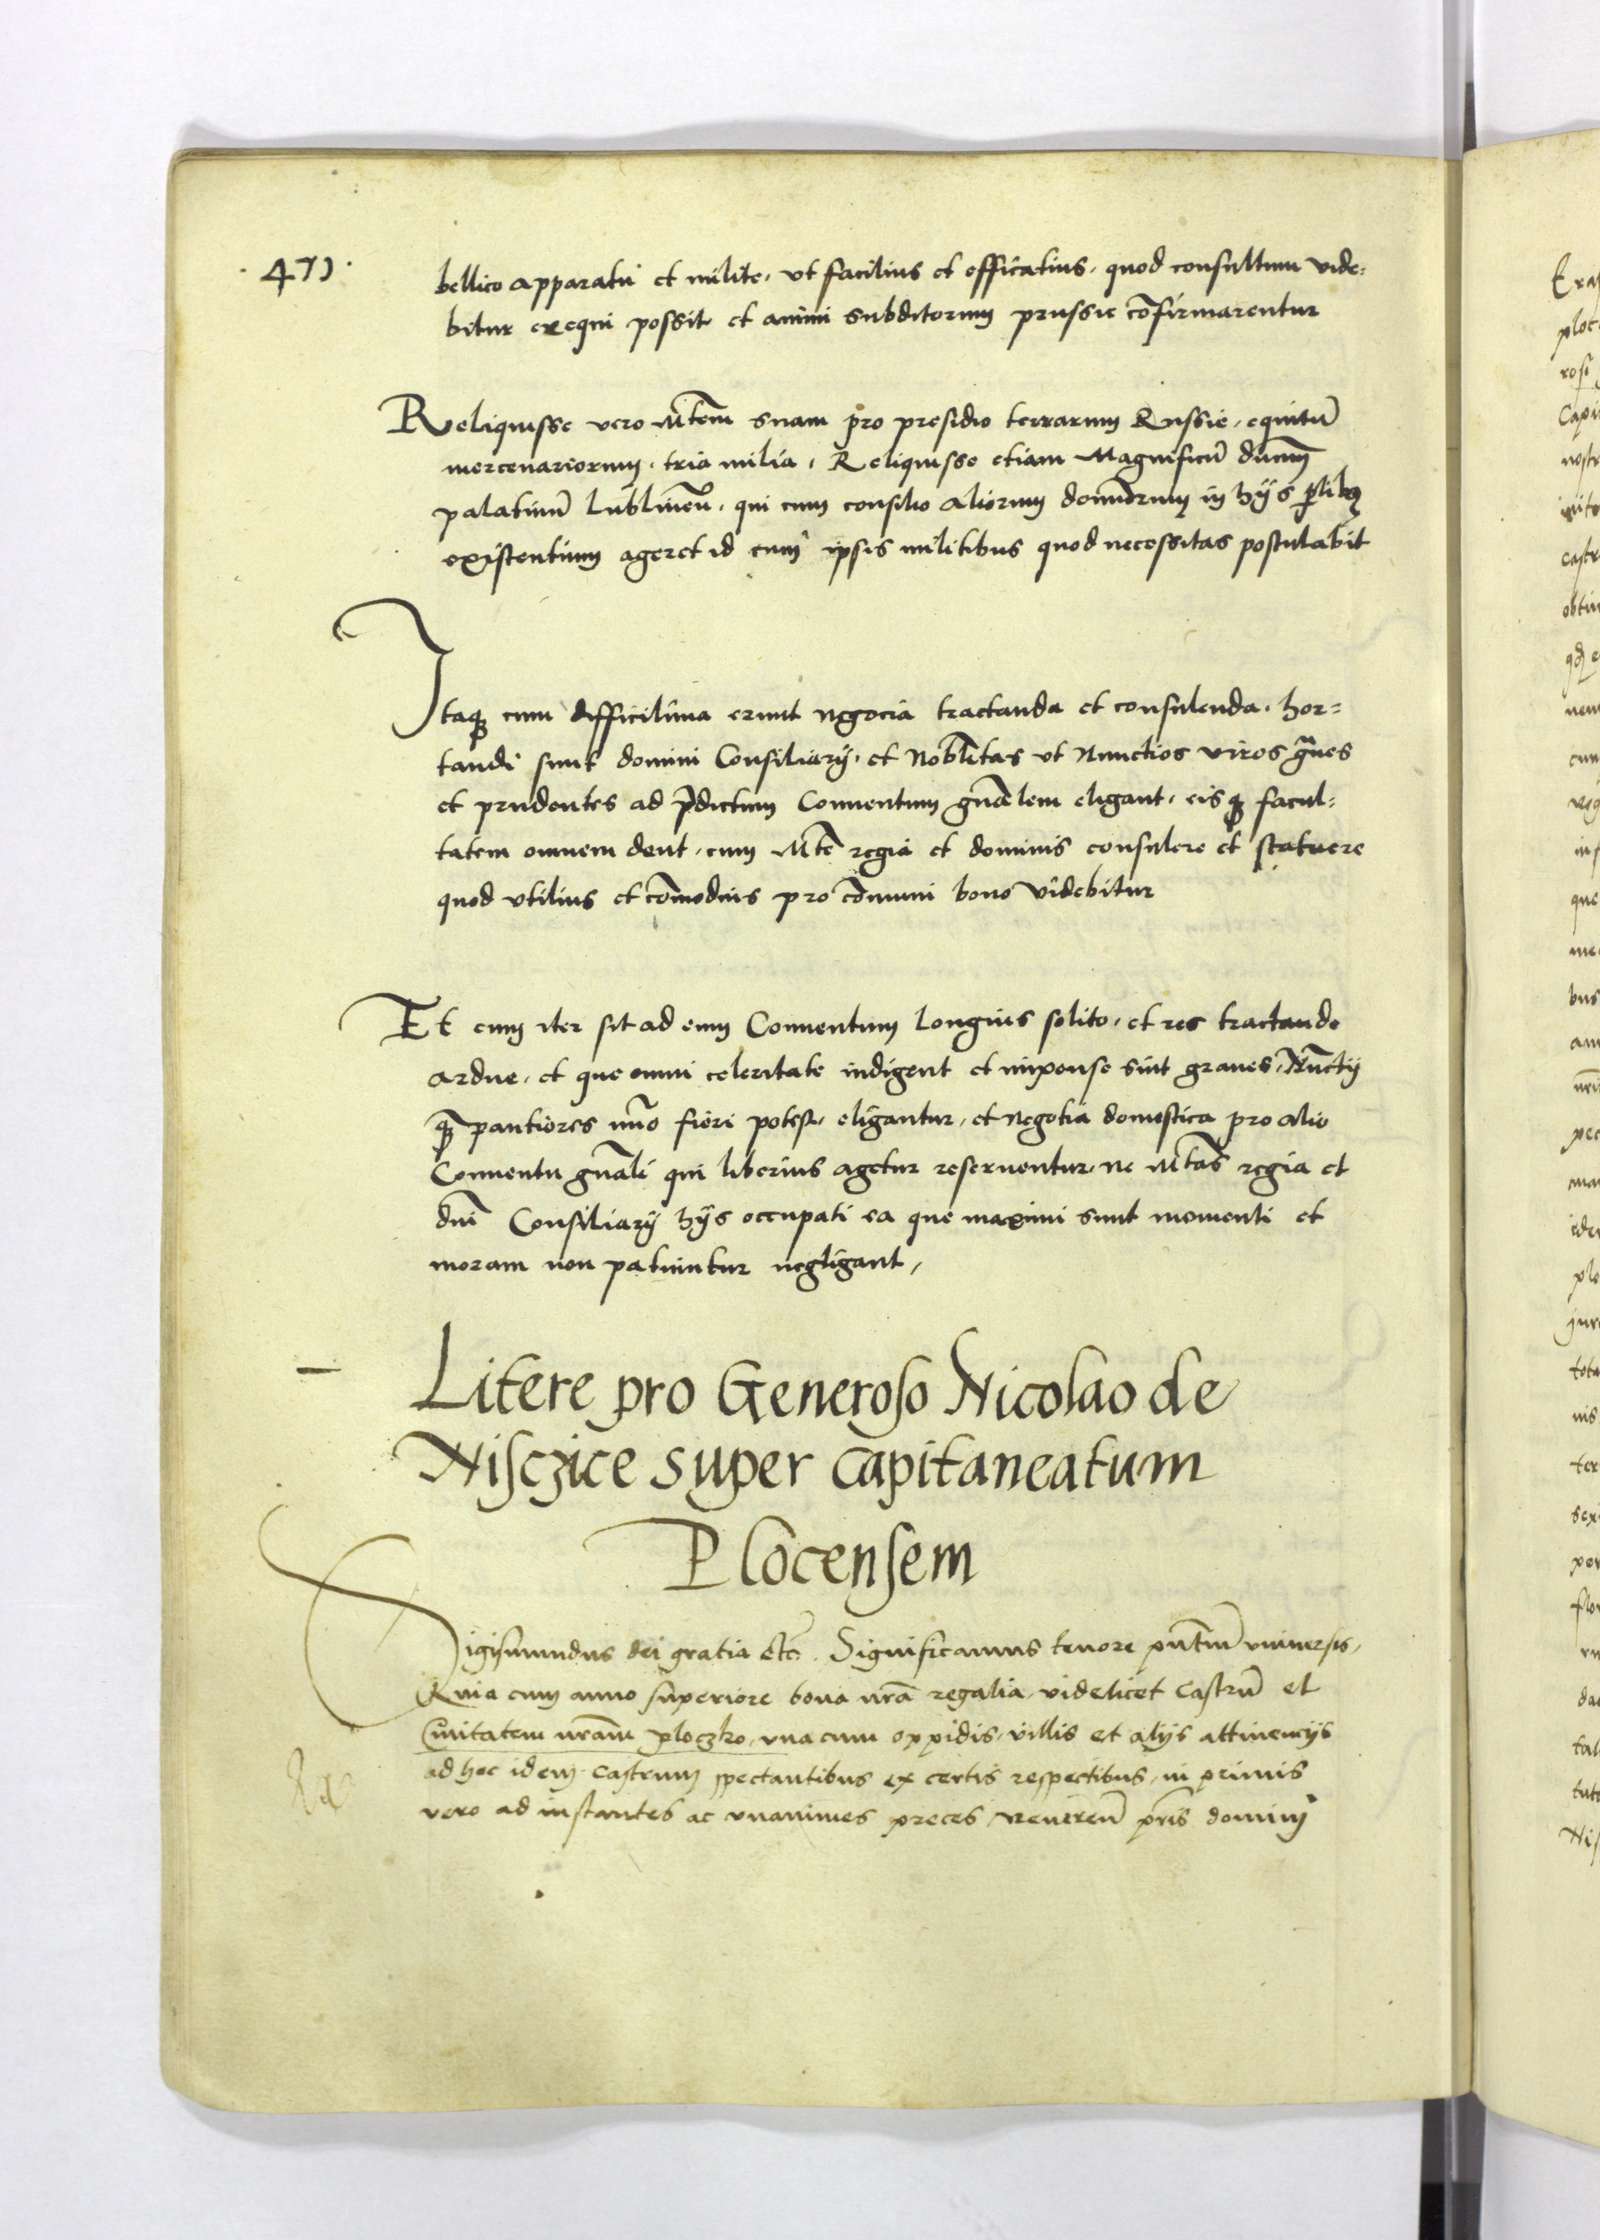 · 471 ·
bellico apparatu et milite, ut facilius et efficatius, quod consultum vide=
bitur exequi possit et animi subditorum prussie cōfirmarentur
Reliquisse vero Mtem̄ suam pro presidio terrarum Russie, equitū
mercenariorum, tria milia, Reliquisse etiam Magnificū dn̄um
palatinū lublineñ, qui cum consilio aliorum dominorum in hijs ꝑtibꝫ
existentium ageret id cum ipsis militibus quod necessitas postulabit
Itaqꝫ cum difficilima erunt negocia tractanda et consulenda, hor=
tandi sunt domini Consiliarij, et Nobilitas ut Nunctios viros grāues
et prudentes ad p̄dictum Conuentum gn̄alem eligant, eisqꝫ facul=
tatem omnem dent, cum Mte regia et dominis consulere et statuere
quod utilius et cōmodius pro cōmuni bono videbitur
Et cum iter sit ad eum Conuentum longius solito, et res tractande
ardue, et que omni celeritate indigent et impense sint graues, Nunctij
qꝫ pautiores fieri potest, eligantur, et negotia domestica pro alio
Conuentu gn̄ali qui liberius agetur reseruentur, ne Mtas regia et
dn̄i Consiliarij hijs occupati ea que maximi sunt momenti et
moram non patiuntur negligant,
Litere pro Generoso Nicolao de
Nisczice super capitaneatum
Plocensem
Sigismundus dei gratia etc. Significamus tenore pn̄tium vniuersis,
Quia cum anno superiore bona nrā regalia, videlicet Castrū et
Ciuitatem nrām ploczko, vna cum oppidis, villis et alijs attinencijs
ad hoc idem Castrum spectantibus ex certis respectibus, in primis
vero ad instantes ac vnanimes preces Reuereñ pr̄is domini